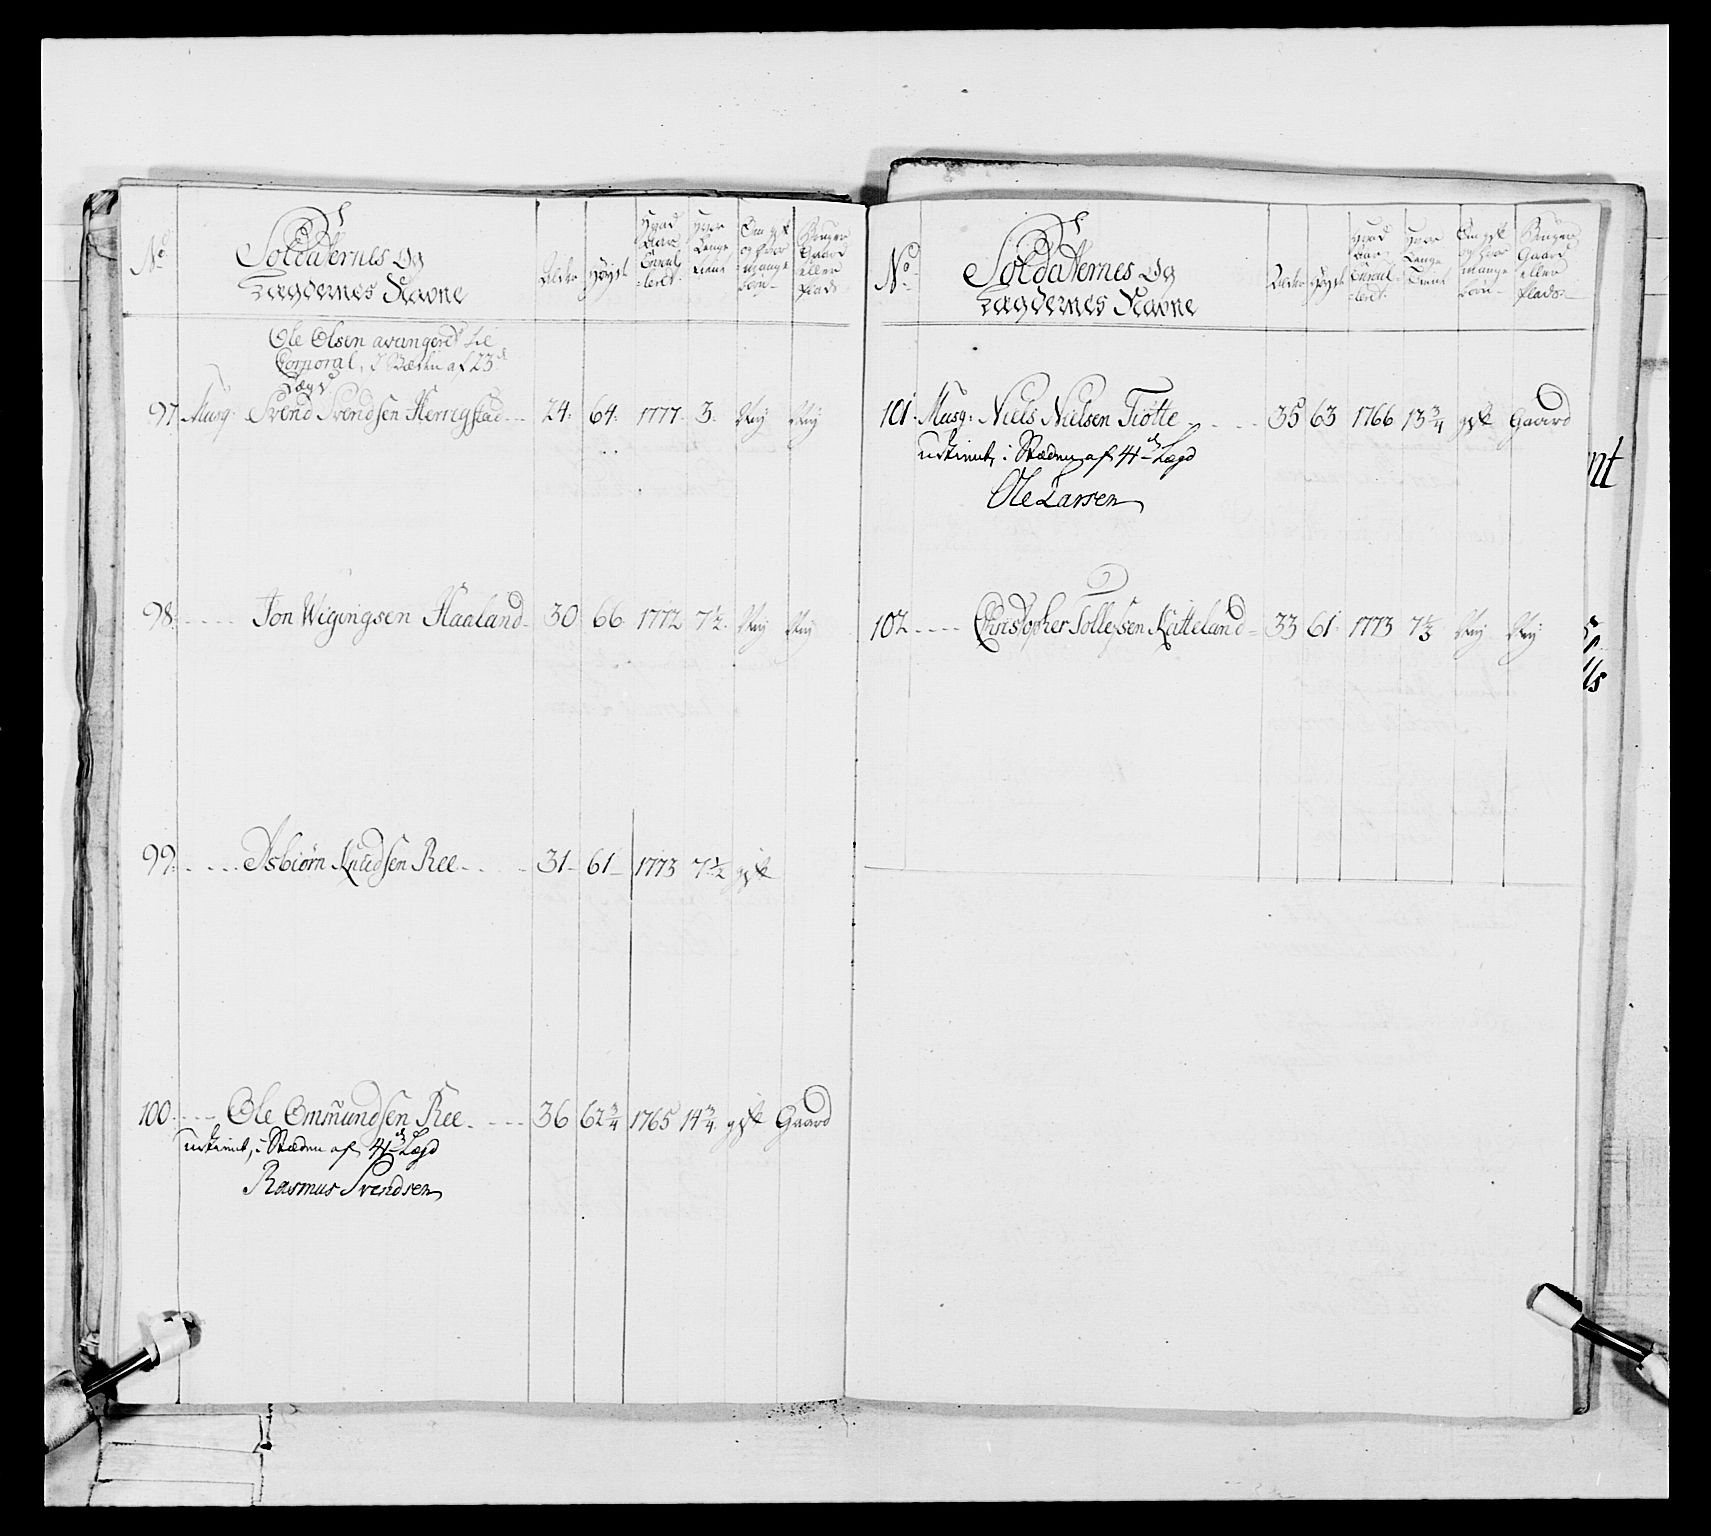 No
Soldaternes Og
Lægdernes Navne
Alder
Høyde
Hvad
Aar
Enrol
leret
Hvor
Længe
tient
Om gift
og hvor
mange
børn
Bruger
Gaard
eller
Plads
Ole Olsen avangered til
Corporal, I Stæden af 23d
Lægd
97 Musq: Svend Svendsen Herrigstad 24 64 1777 3 Ney Ney
98 Jon Wigingsen Haaland 30 66 1772 7½ Ney Ney
99 Asbiørn Knudsen Ree 31 61 1773 7½ gift
100 Ole Ommundsen Ree 36 62¾ 1765 14¾ gift Gaard
udtient, i Stæden af 4de Lægd
Rasmus Svendsen
No
Soldaternes Og
Lægdernes Navne
Alder
Høyde
Hvad
Aar
Enrol
leret
Hvor
Længe
Tient
Om gift
og hvor
mange
børn
Bruger
Gaard
eller
Plads
101 Musq: Niels Nielsen Tiotte 35 63 1766 13¾ gift Gaard
udtient, i Stæden af 4de Lægd
Ole Larsen
102 Christopher Tollefsen Katteland 33 61 1773 7½ Ney Ney